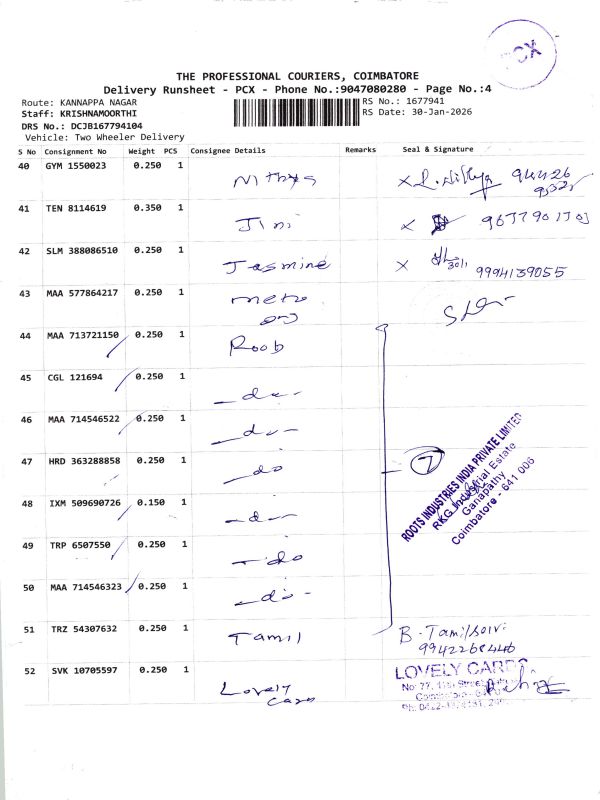 PCX
THE PROFESSIONAL COURIERS, COIMBATORE
Delivery Runsheet - PCX - Phone No.:9047080280 - Page No.:4
Route: KANNAPPA NAGAR
RS No.: 1677941
Staff: KRISHNAMOORTHI
RS Date: 30-Jan-2026
DRS No.: DCJB167794104
Vehicle: Two Wheeler Delivery
S No Consignment No Weight PCS Consignee Details Remarks Seal & Signature
40 GYM 1550023 0.250 1 Nithya X
41 TEN 8114619 0.350 1 Jini X
42 SLM 388086510 0.250 1 Jasmine X 30/1 9994139055
43 MAA 577864217 0.250 1 metro
44 MAA 713721150 0.250 1 Roob
45 CGL 121694 0.250 1 - do -
46 MAA 714546522 0.250 1 - do -
47 HRD 363288858 0.250 1 - do
48 IXM 509690726 0.150 1 - do -
49 TRP 6507550 0.250 1 - do
50 MAA 714546323 0.250 1 - do -
7
ROOTS INDUSTRIES INDIA PRIVATE LIMITED
RKG Industrial Estate
Ganapathy
Coimbatore - 641 006
51 TRZ 54307632 0.250 1 Tamil B. Tamilselvi
9942268446
52 SVK 10705597 0.250 1 Lovely
Cards
LOVELY CARDS